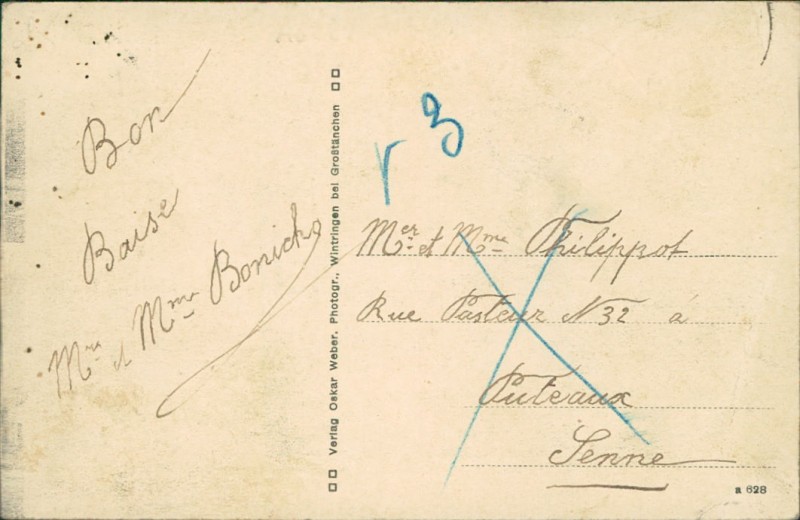 Bon
Baise
Mme et Mme Bonich
Verlag Oskar Weber, Photogr., Wintringen bei Großtänchen
r 3
Mer et Mme Philippot
Rue Pasteur N 32 á
Puteaux
Senne
a 628